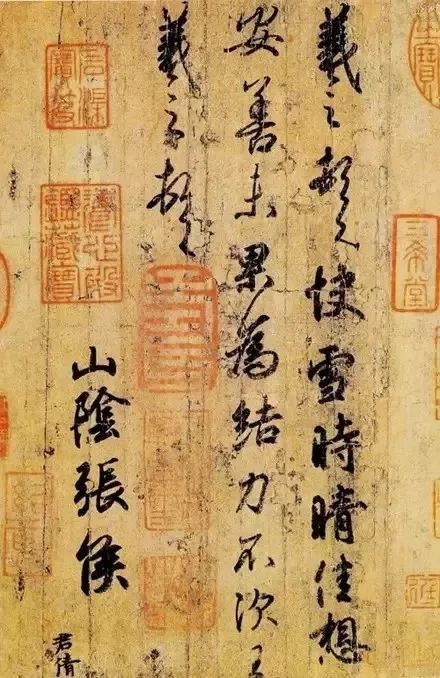 羲之頓首快雪時晴佳想
安善未果為結力不次王
羲之頓首
山陰張侯
君倩
三希堂
養心殿鑑藏寶